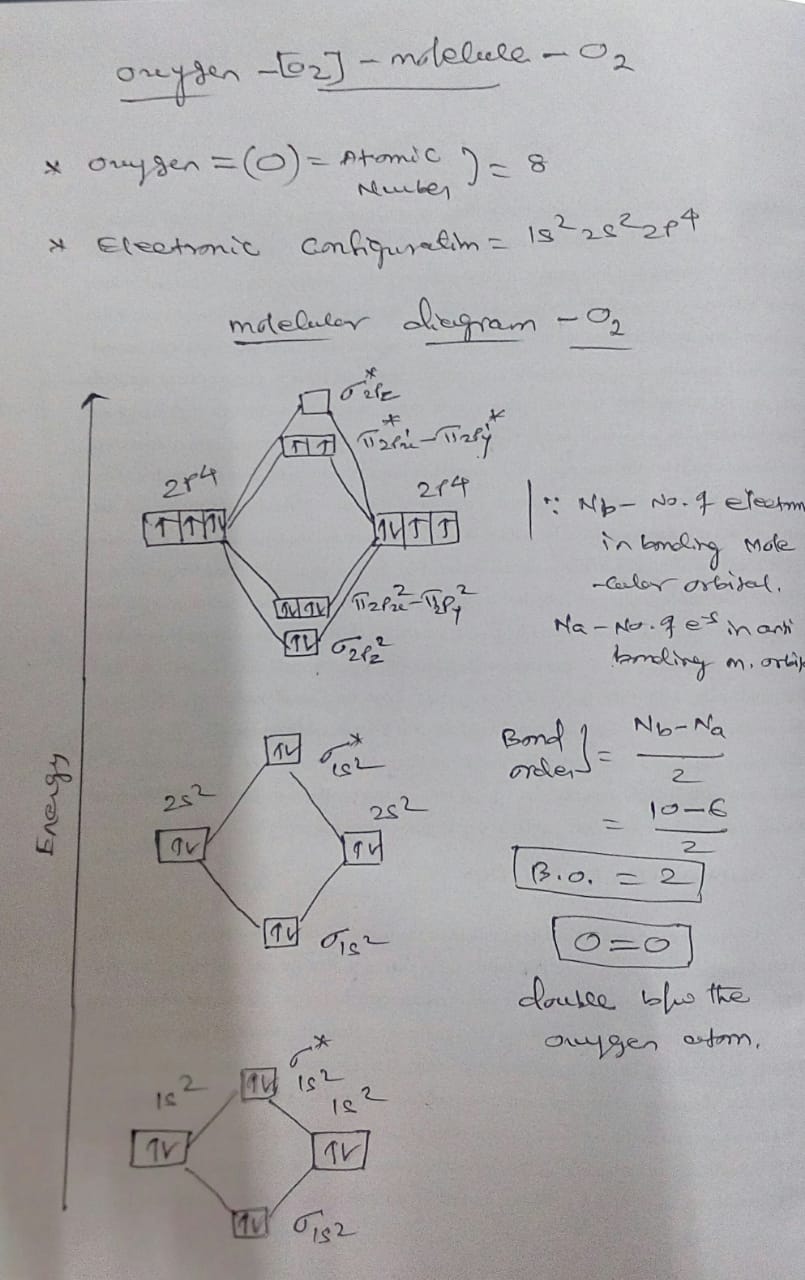 oxygen - [O2] - molecule - O2
* oxygen = (O) = Atomic Number } = 8
* Electronic Configuration = 1s² 2s² 2p⁴
molecular diagram - O2
σ*2pz
π*2px - π2py*
2p4
2p4
π2px² - π2py²
σ2pz²
∵ Nb - No. of electron
in bonding Mole
-cular orbital.
Na - No. of e-s in anti
bonding m. orbit
Energy
σ*1s2
2s2
2s2
σ1s2
Bond order } = Nb - Na / 2
= 10 - 6 / 2
B.O. = 2
O=O
double b/w the
oxygen atom.
σ*1s2
1s2
1s2
σ1s2